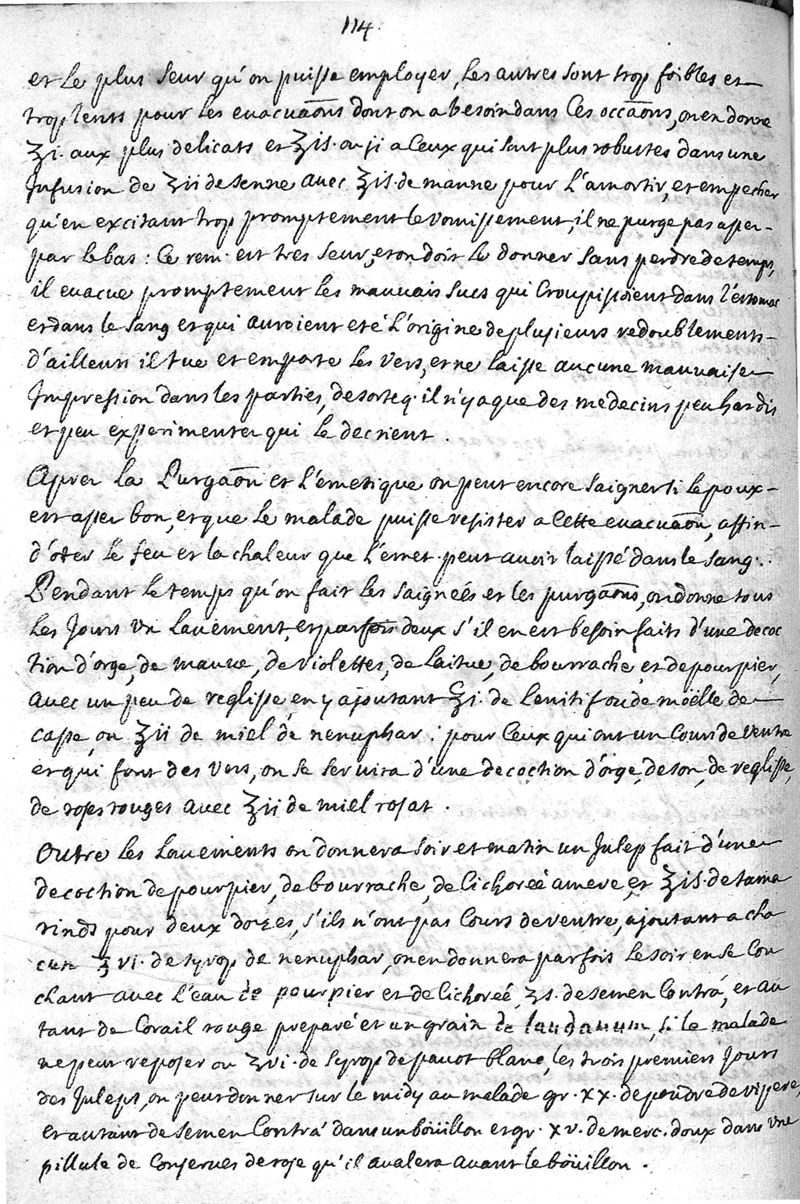 114.
et le plus seur qu'on puisse employer, les autres sont trop foibles et
trop lents pour les evacuãons dont on a besoin dans ces occãons, on en donne
ʒi. aux plus delicats et ʒis. ou ji a ceux qui sont plus robustes dans une
Infusion de ʒii de senne avec ʒis. de manne pour l'amortir, et empecher
qu'en excitant trop promptement le vomissement, il ne purge pas assez
par le bas : Ce rem. est tres seur, et on doit le donner sans perdre de temps,
il evacue promptement les mauvais sucs qui croupissoient dans l'estomac
et dans le sang et qui auroient eté l'origine de plusieurs redoublements
d'ailleurs il tue et emporte les vers, et ne laisse aucune mauvaise
Impression dans les parties, de sorte q. il n'y a que des medecins peu hardis
et peu experimentez qui le decrient.
Aprez la Purgãon et l'emetique on peut encore saigner si le poux
est assez bon, et que le malade puisse resister a cette evacuãon, affin
d'oter le feu et la chaleur que l'emet. peut avoir laissé dans le sang.
Pendant le temps qu'on fait les saigneés et les purgãons, on donne tous
les Jours un lavement, et par fois deux s'il en est besoin faits d'une decoc
tion d'orge, de mauve, de violettes, de laitue, de bourrache, et de pourpier,
avec un peu de reglisse, en y ajoutant ʒi. de lenitif ou de moëlle de
casse, ou ʒii de miel de nenuphar : pour ceux qui ont un cours de ventre
et qui font des vers, on se servira d'une decoction d'orge, de son, de reglisse,
de roses rouges avec ʒii de miel rosat.
Outre les lavements on donnera soir et matin un Julep fait d'une
decoction de pourpier, de bourrache, de cichoreé amere, et ʒis. de tama
rinds pour deux dozes, s'ils n'ont pas cours de ventre, ajoutant a cha
cun ʒvi. de syrop de nenuphar, on en donnera parfois le soir en se cou
chant avec l'eau de pourpier et de cichoreé, ʒs. de semen contrá, et au
tant de corail rouge preparé et un grain de laudanum, si le malade
ne peut reposer ou ʒvi. de syrop de pavot blanc, les trois premiers Jours
des Juleps, on peut donner sur le midy au malade gr. xx. de poudre de vipere,
et autant de semen contrá dans un boüillon et gr. xv. de merc. doux dans une
pillule de conserves de rose qu'il avalera avant le boüillon.